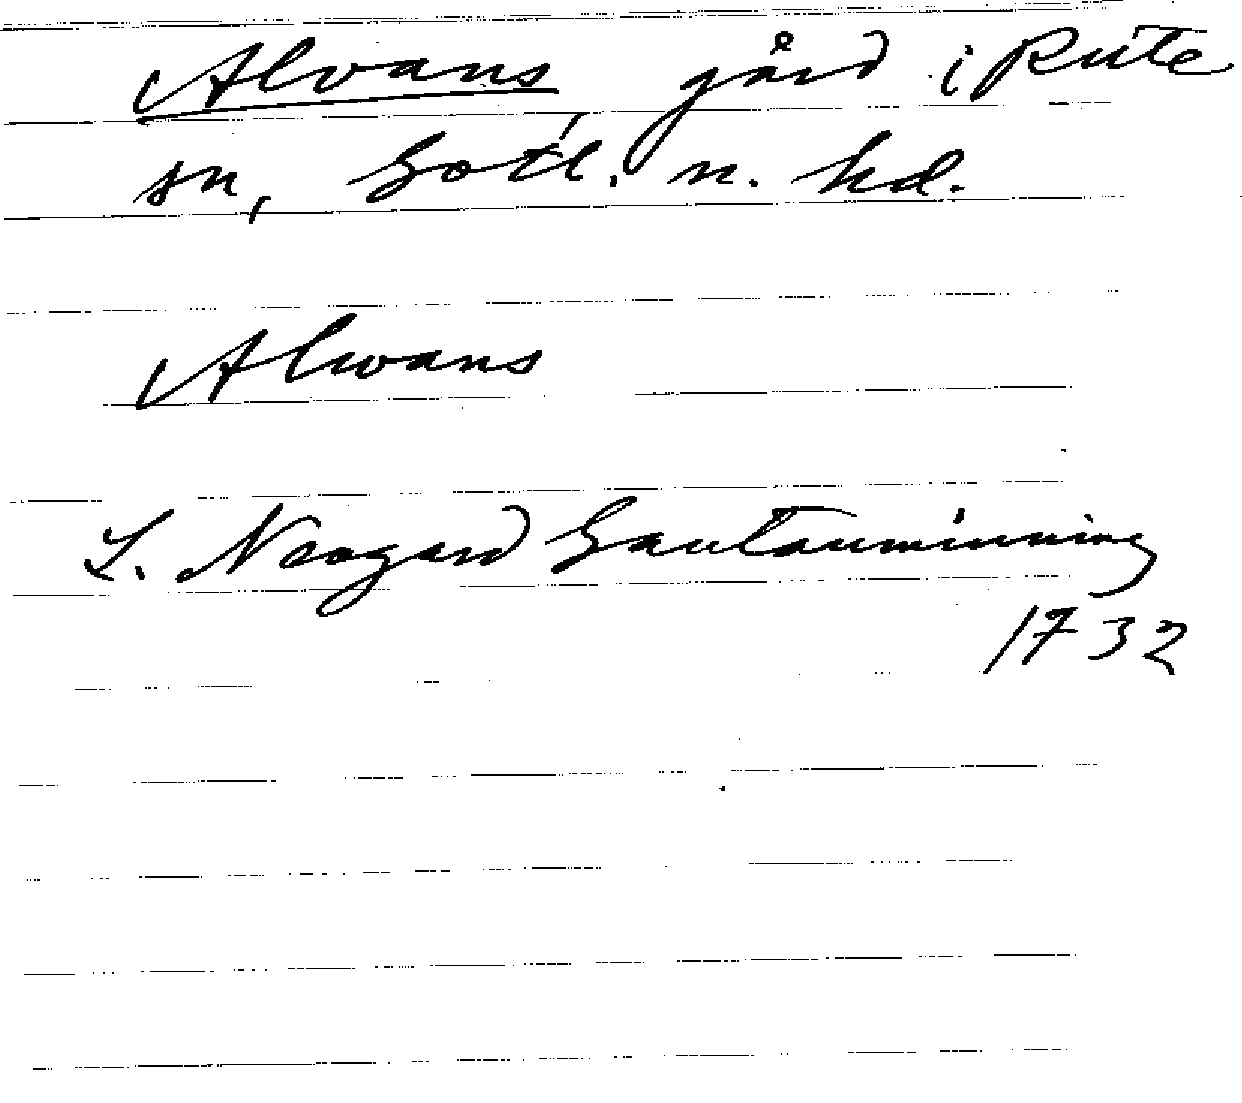 Alvans gård i Rute
sn, Gotl. n. hd.
Alwans
L. Neogard Gautauminning
1732